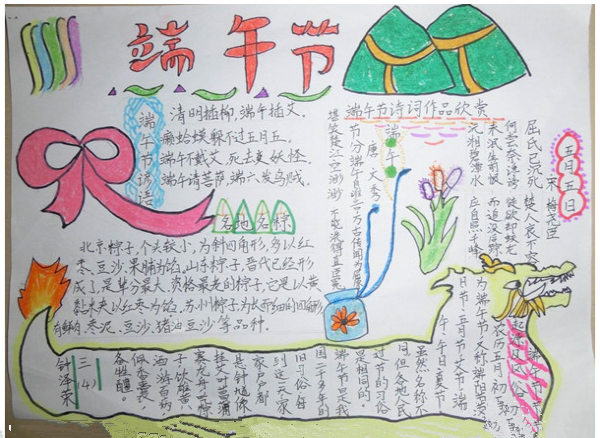 端午节
端午节谚语
清明插柳，端午插艾。
癞蛤蟆躲不过五月五。
端午不戴艾，死去变妖怪。
端午请菩萨，端六发乌贼。
各地名粽
北京粽子，个头较小，为斜四角形，多以红
枣、豆沙、果脯为馅，山东粽子，晋代已经形
成了，是单分最大、资格最老的粽子，它是以黄
黏米夹以红枣为馅，苏州粽子为长形四角形
有鲜肉、枣泥、豆沙、猪油豆沙等品种。
端午节诗词作品欣赏
五月五日
宋 梅尧臣
屈氏已沉死，楚人哀不容。
何尝奈谗谤，徒欲却蛟龙。
未泯生前恨，而追没后踪。
沅湘碧潭水，应自照千峰。
端午
唐 文秀
节分端午自谁言，万古传闻为屈原。
堪笑楚江空渺渺，不能洗得直臣冤。
端午节
起源风俗
农历五月初五
为端午节，又称端阳节
日节、五月节、天节、端
午、午日、夏节
虽然名称不
同但各地人民
过节的习俗
是相同的。
端午节是我
国二千多年的
旧习俗每
到这一天家
家户户都
悬钟馗像
挂艾叶菖蒲
赛龙舟吃粽
子饮雄黄
酒游百病
佩香囊，
备牲醴。
三(4)
钟泽荣